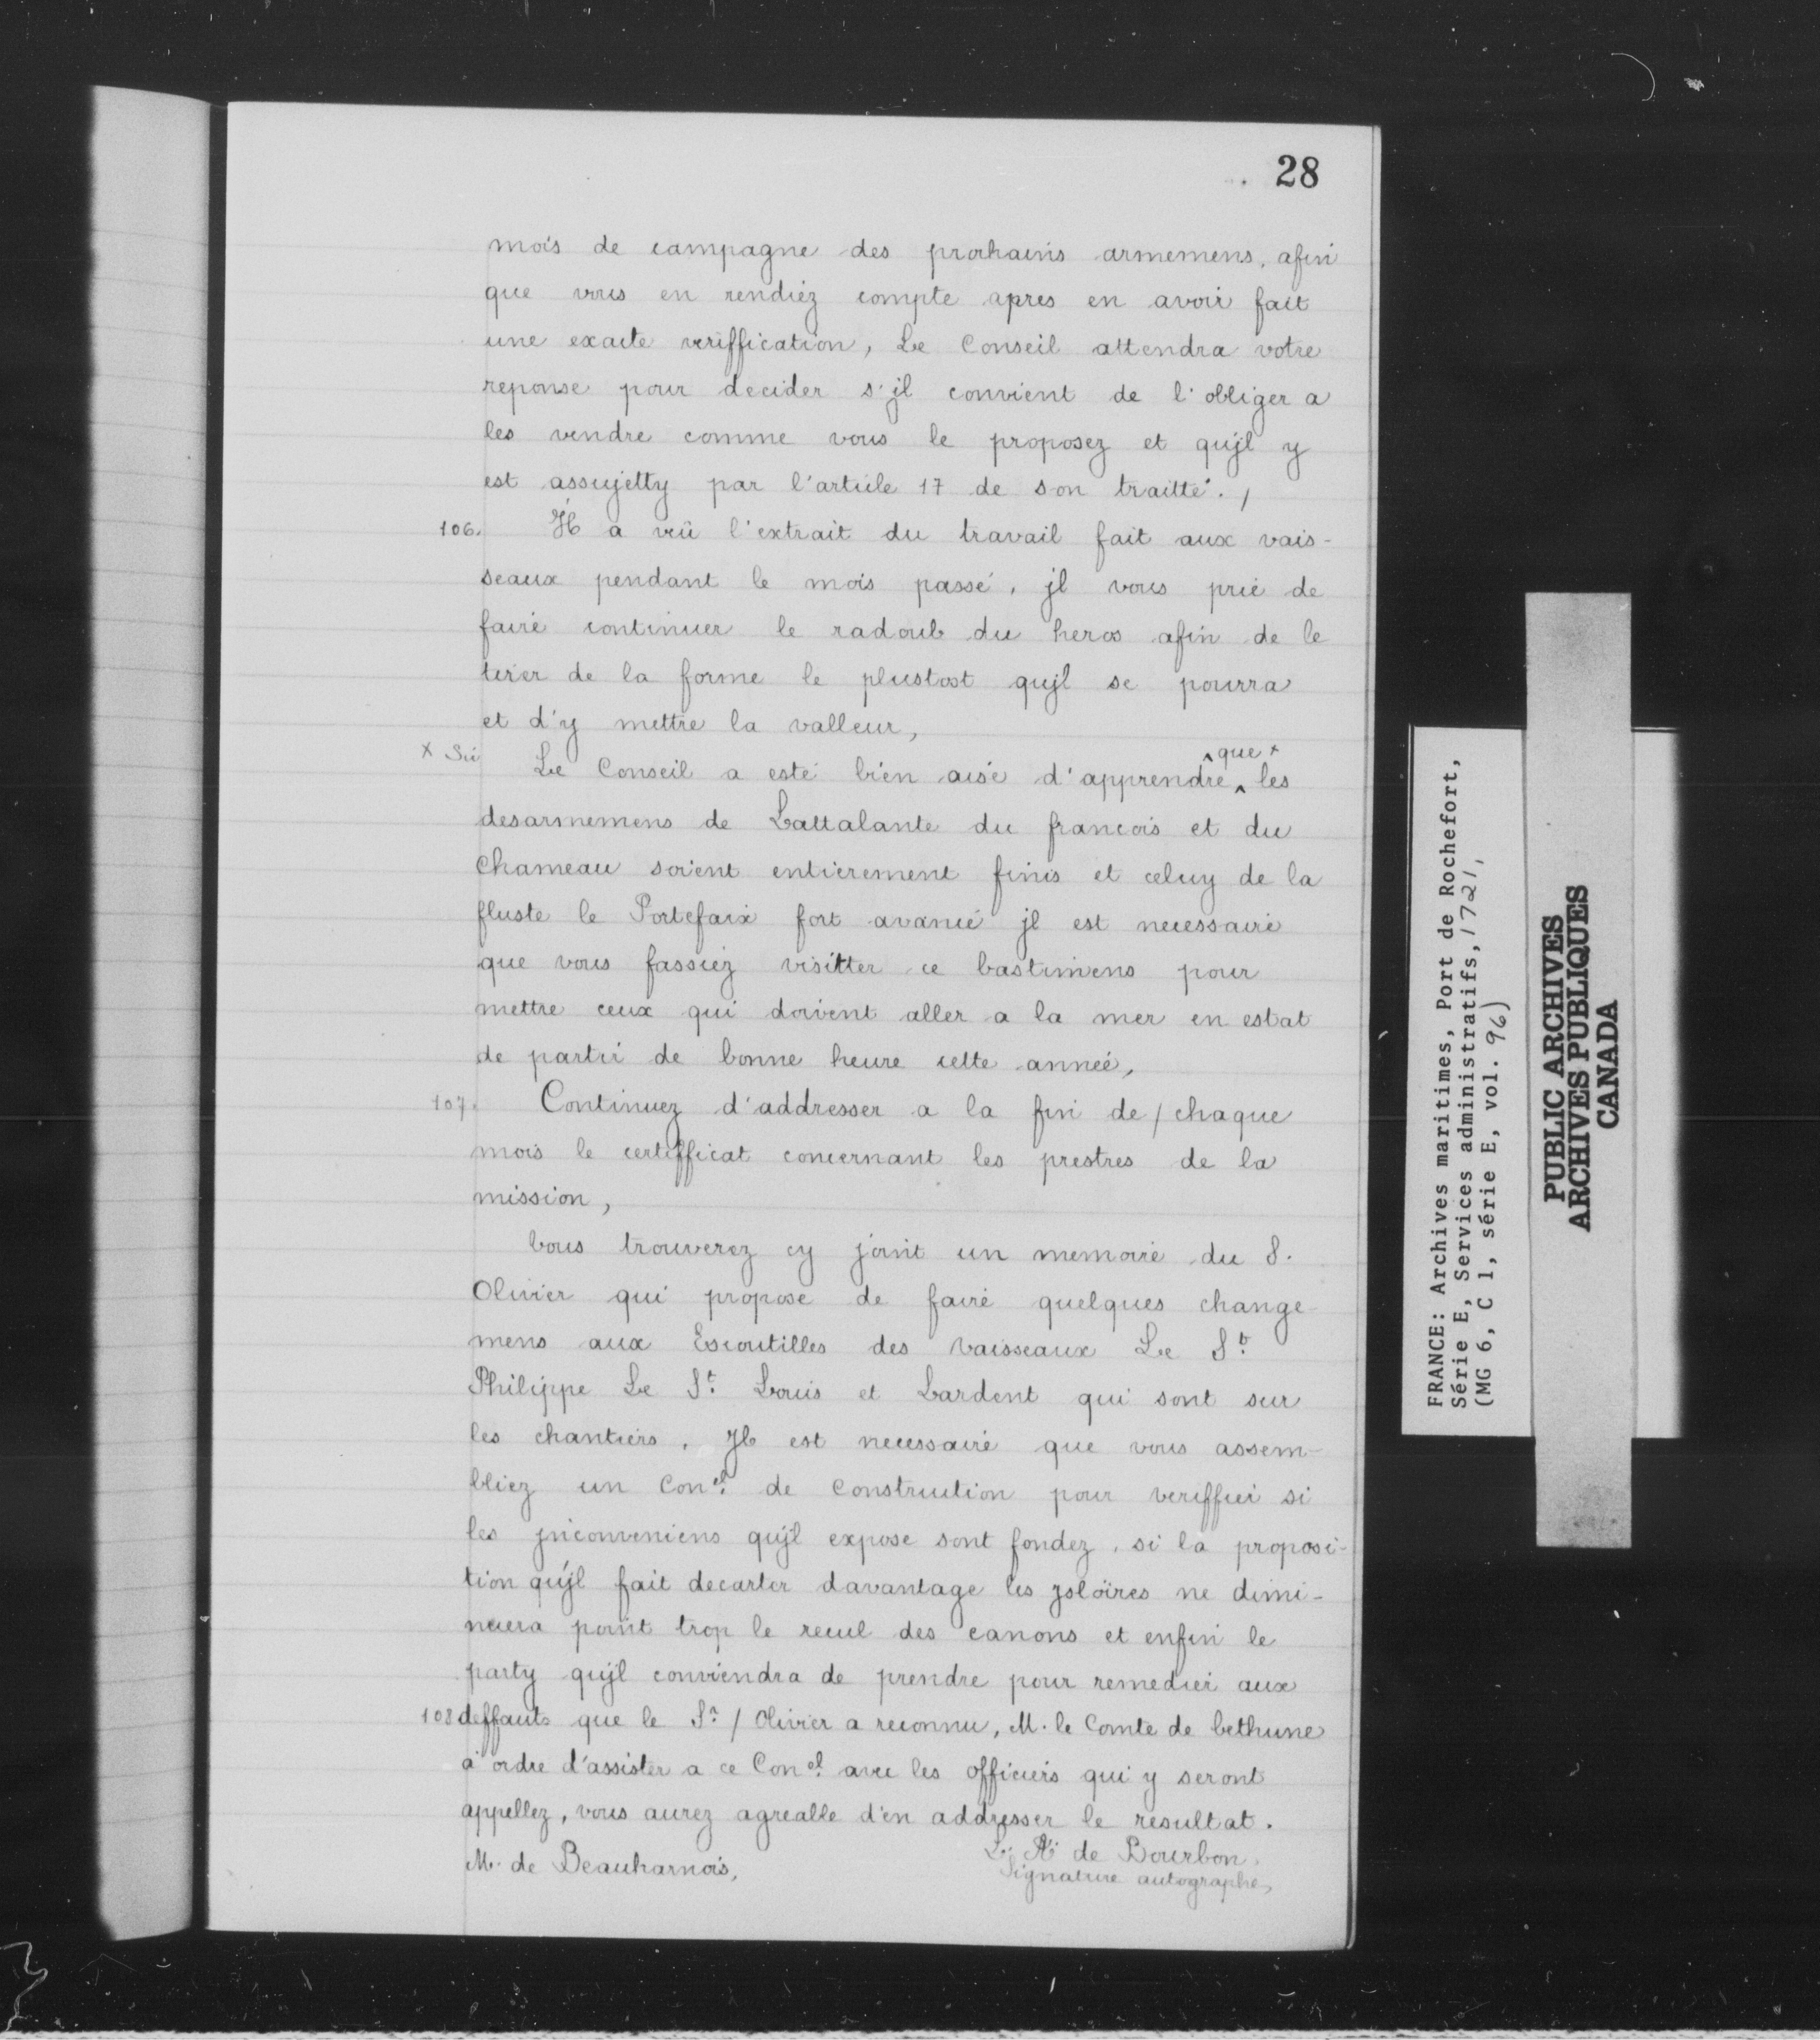 28
mois de campagne des prochains armemens, afin
que vous en rendiéz compte apres en avoir fait
une exacte veriffication, Le Conseil attendra votre
reponse pour decider s'jl convient de l'obliger a
les vendre comme vous le proposez et qujl y
est assujetty par l'article 17 de son traitté. /
106. Jl a veû l'extrait du travail fait aux vais-
seaux pendant le mois passé, jl vous prie de
faire continuer le radoub du heros afin de le
tirer de la forme le plustost qujl se pourra
et d'y mettre la valleur,
x Sic Le Conseil a esté bien aisé d'apprendre ^ que x les
desarmemens de Lattalante du francois et du
Chameau soient entierement finis et celuy de la
fluste le Portefaix fort avancé jl est necessaire
que vous fassiéz visitter ce bastimens pour
mettre ceux qui doivent aller a la mer en estat
de partir de bonne heure cette année,
107. Continuez d'addresser a la fin de / chaque
mois le certifficat concernant les prestres de la
mission,
Vous trouverez cy joint un memoire du S.
Olivier qui propose de faire quelques change-
mens aux Escoutilles des Vaisseaux Le St.
Philippe Le St. Louis et Lardent qui sont sur
les chantiers. Jl est necessaire que vous assem-
bliez un Conel. de Construction pour veriffier si
les jnconveniens qujl expose sont fondez, si la proposi-
tion qu'jl fait decarter davantage les jsloires ne dimi-
nuera point trop le recul des canons et enfin le
party qujl conviendra de prendre pour remedier aux
108 deffauts que le Sr. / Olivier a reconnu, M. le Comte de bethune
a ordre d'assister a ce Conel. avec les officiers qui y seront
appellez, vous aurez agreable d'en addresser le resultat.
L. A. de Bourbon.
M. de Beauharnois,
Signature autographe,
FRANCE: Archives maritimes, Port de Rochefort,
Série E, Services administratifs, 1721,
(MG 6, C 1, série E, vol. 96)
PUBLIC ARCHIVES
ARCHIVES PUBLIQUES
CANADA